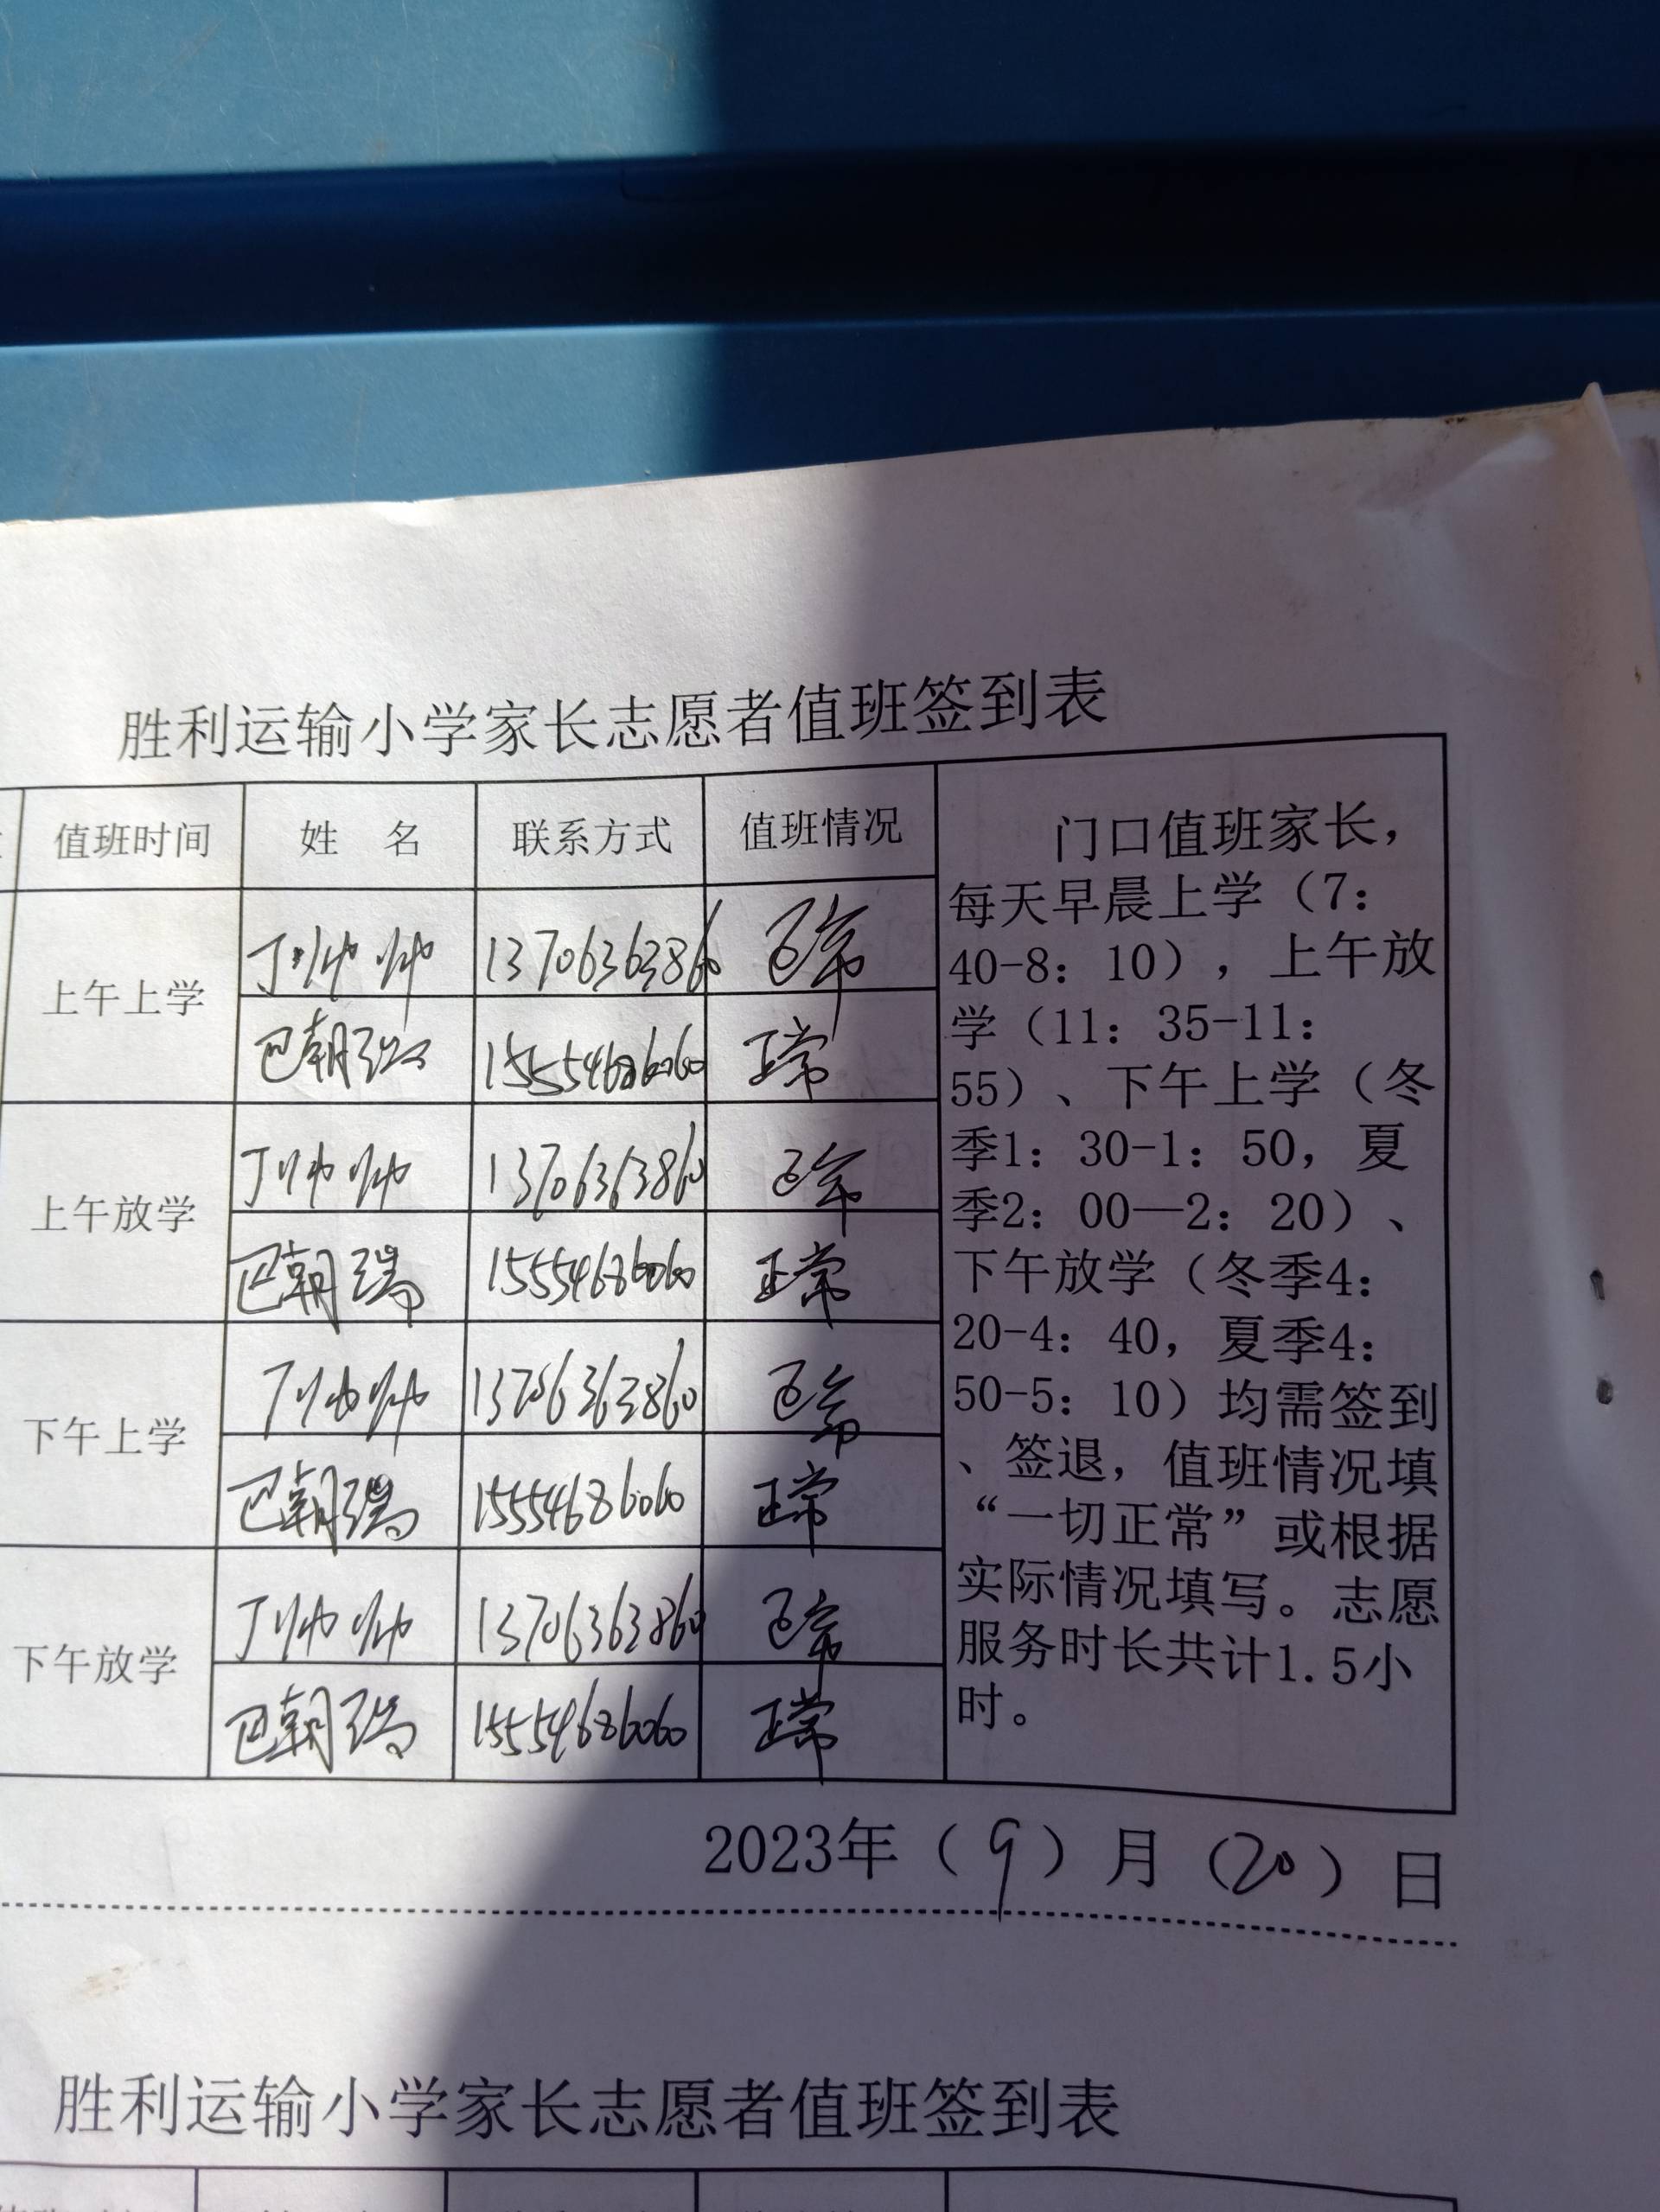 胜利运输小学家长志愿者值班签到表
值班时间 姓 名 联系方式 值班情况
上午上学
丁帅帅 13706363860 正常
巴朝瑞 15554686060 正常
上午放学
丁帅帅 13706363860 正常
巴朝瑞 15554686060 正常
下午上学
丁帅帅 13706363860 正常
巴朝瑞 15554686060 正常
下午放学
丁帅帅 13706363860 正常
巴朝瑞 15554686060 正常
门口值班家长，
每天早晨上学（7：
40-8：10），上午放
学（11：35-11：
55）、下午上学（冬
季1：30-1：50，夏
季2：00—2：20）、
下午放学（冬季4：
20-4：40，夏季4：
50-5：10）均需签到
、签退，值班情况填
“一切正常”或根据
实际情况填写。志愿
服务时长共计1.5小
时。
2023年（9）月（20）日
胜利运输小学家长志愿者值班签到表